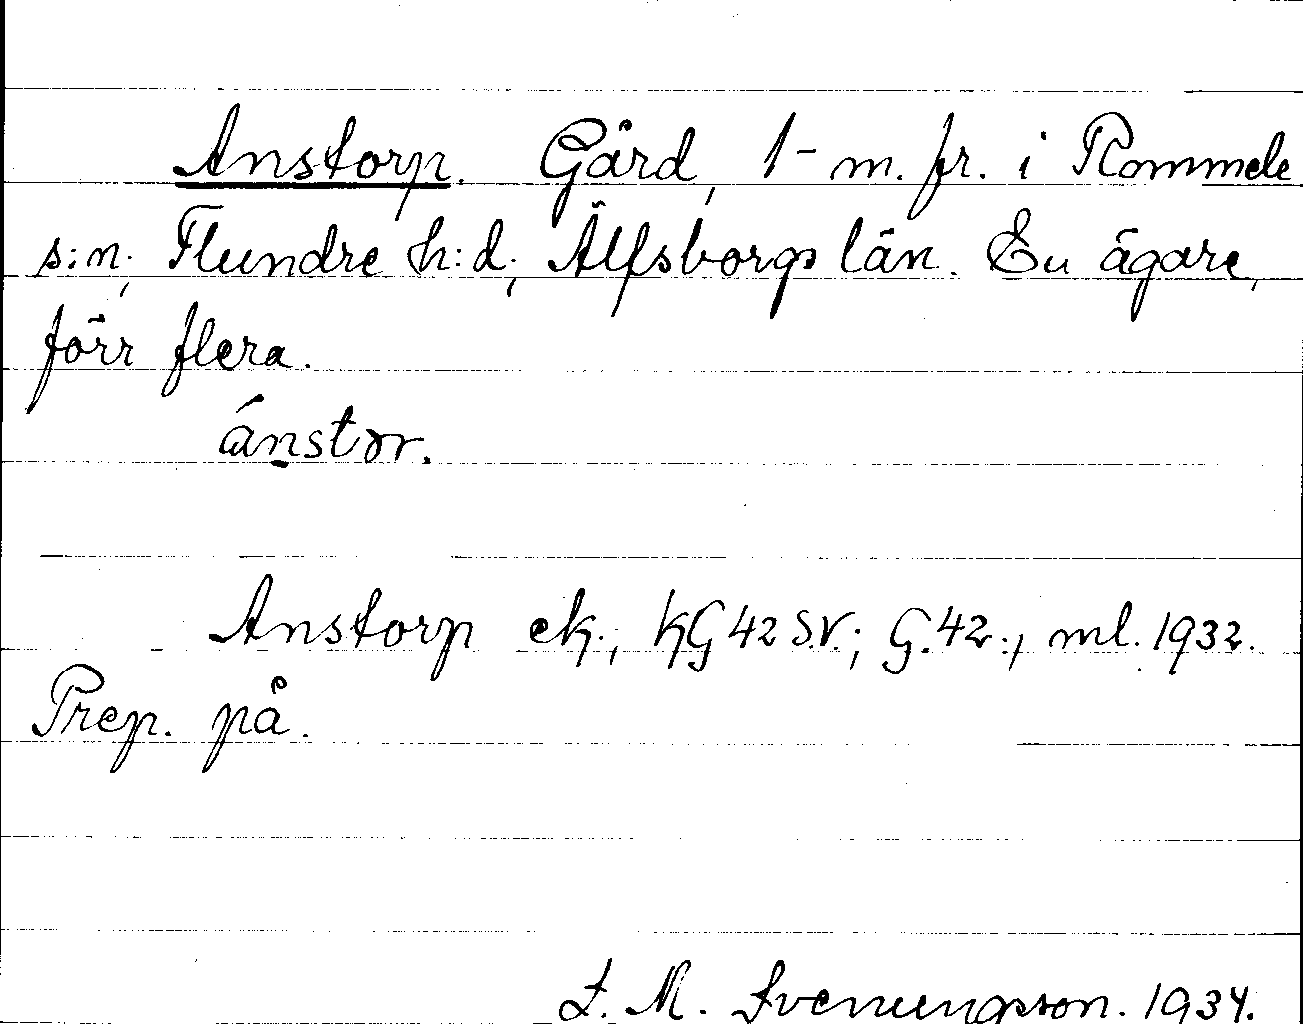 Anstorp. Gård, 1- m. fr. i Rommele
s:n, Flundre h:d, Älfsborgs län. En ägare,
förr flera.
ánstor.
Anstorp ek.; KG 42 S.V.; G. 42.; ml. 1932.
Prep. på.
M. Svenungsson. 1934.